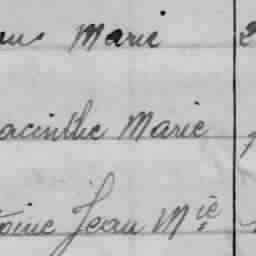 Marie
acinthe Marie
toine Jean Mie